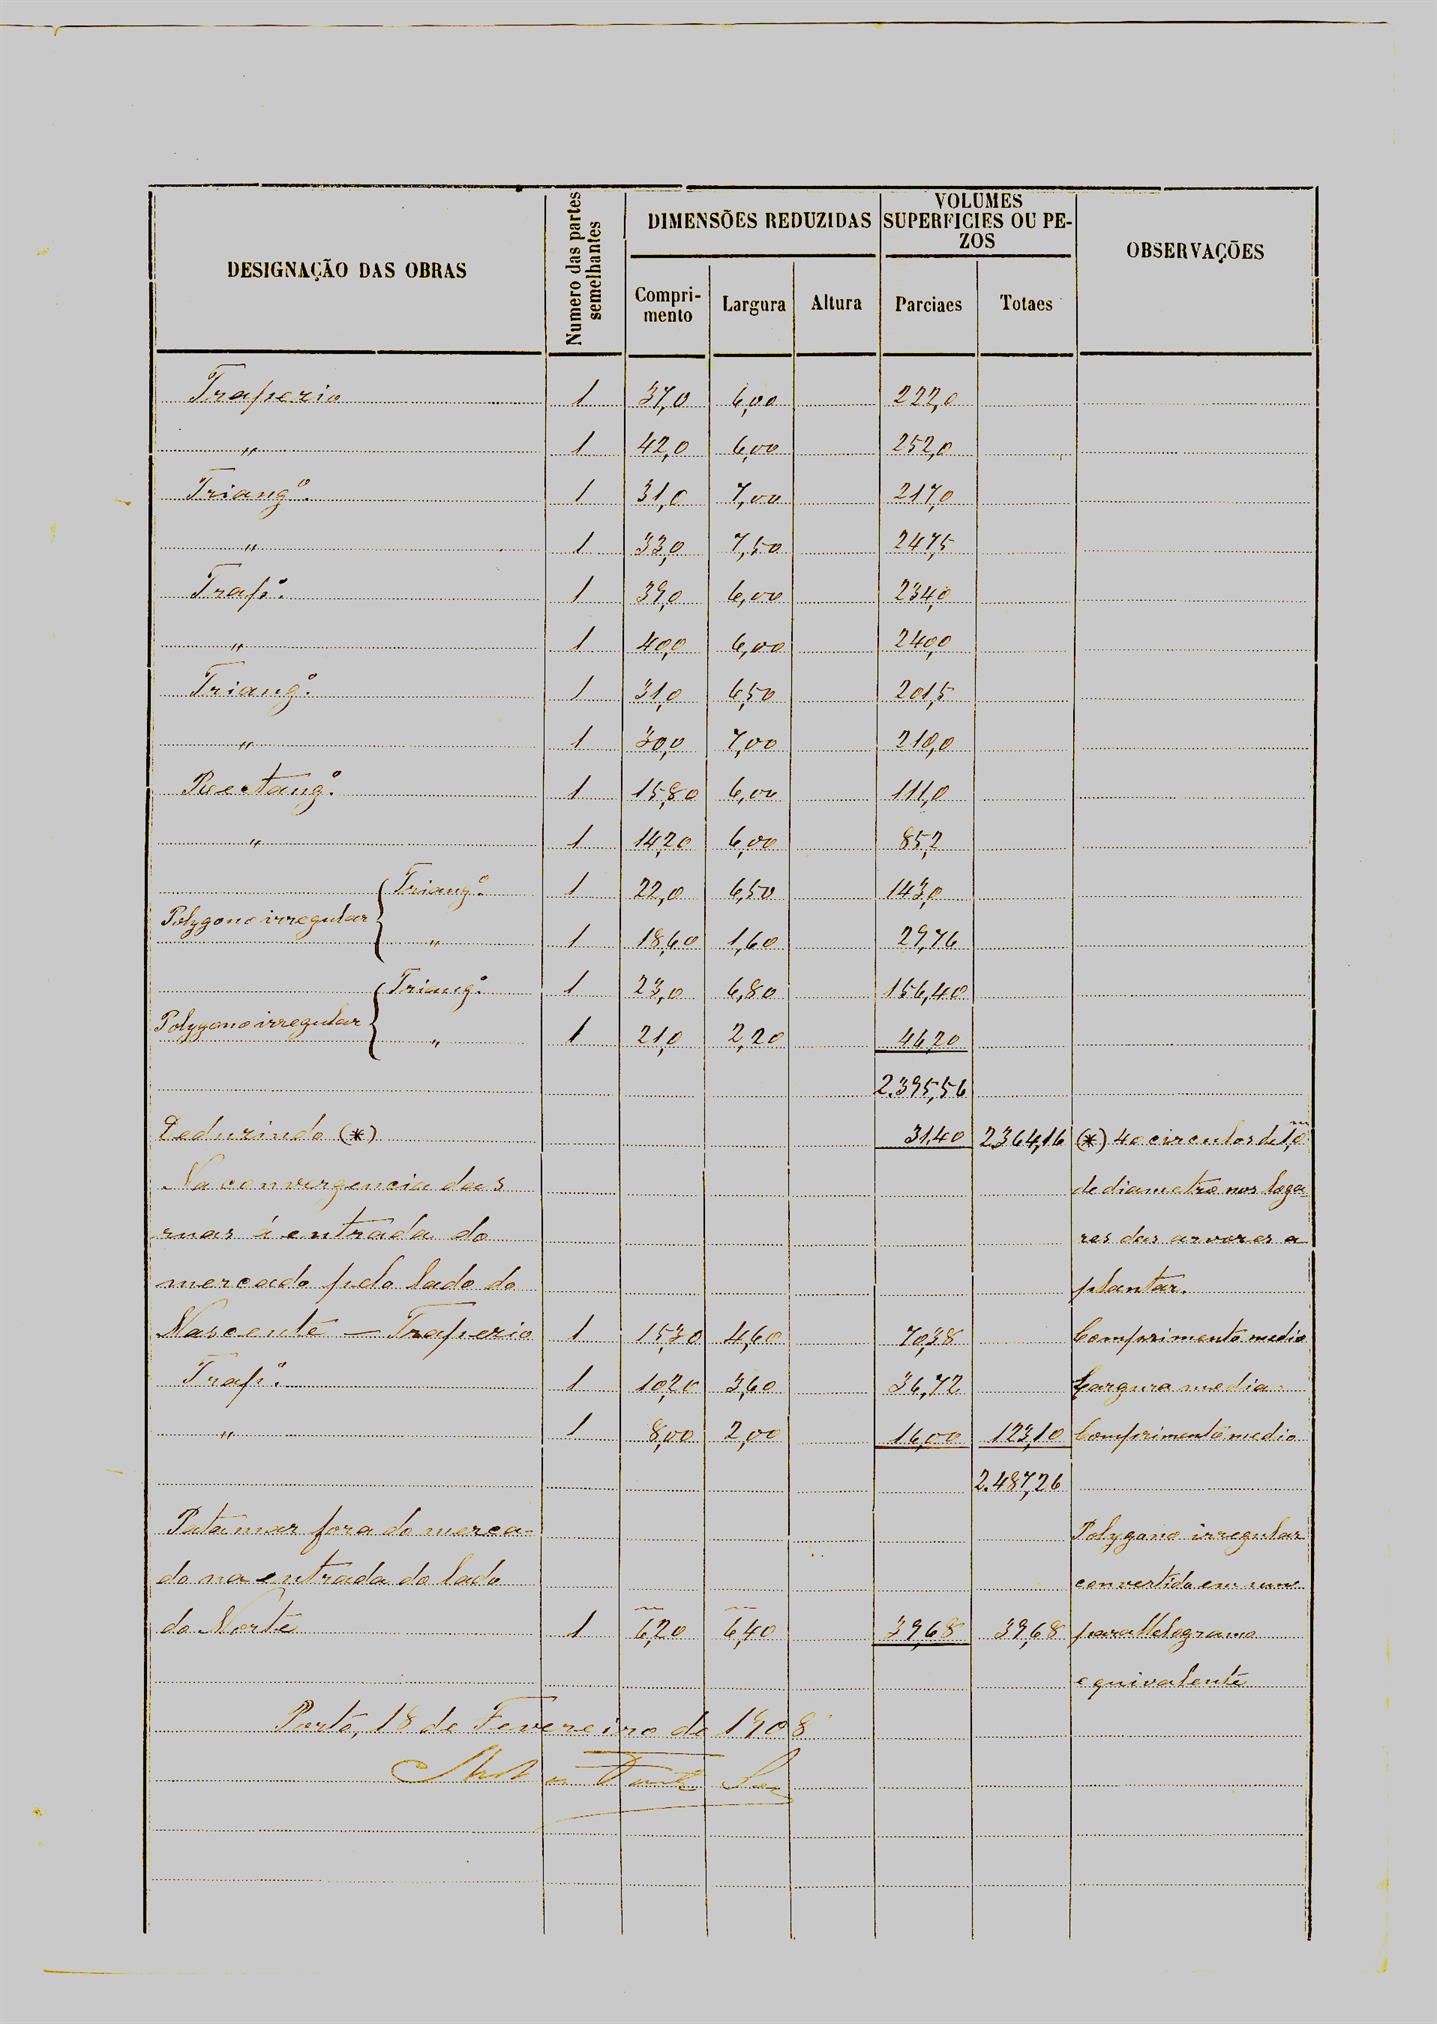 DESIGNAÇÃO DAS OBRAS
Numero das partes semelhantes
DIMENSÕES REDUZIDAS
Compri-
mento
Largura
Altura
VOLUMES
SUPERFICIES OU PE-
ZOS
Parciaes
Totaes
OBSERVAÇÕES
Trapezio 1 37,0 6,00 222,0
" 1 42,0 6,00 252,0
Triangº. 1 31,0 7,00 217,0
" 1 33,0 7,50 247,5
Trapº. 1 39,0 6,00 234,0
" 1 40,0 6,00 240,0
Triangº. 1 31,0 6,50 201,5
" 1 30,0 7,00 210,0
Rectangº. 1 15,80 6,00 111,0
" 1 14,20 6,00 85,2
Polygono irregular { Triangº. 1 22,0 6,50 143,0
" 1 18,60 1,60 29,76
Polygono irregular { Triangº. 1 23,0 6,80 156,40
" 1 21,0 2,20 46,20
2.395,56
Deduzindo (*) 31,40 2364,16 (*) 40 circulos de 1,0m
Na convergencia das de diametro nos loga-
ruas á entrada do res das arvores a
mercado pelo lado do plantar.
Nascente — Trapezio 1 15,30 4,60 70,38 Comprimento medio
Trapº. 1 10,20 3,60 36,72 Largura media
" 1 8,00 2,00 16,00 123,10 Comprimento medio
2.487,26
Patamar fora do merca- Polygono irregular
do na entrada do lado convertido em um
do Norte 1 6,20 6,40 39,68 39,68 parallelogramo
equivalente
Porto, 18 de Fevereiro de 1908